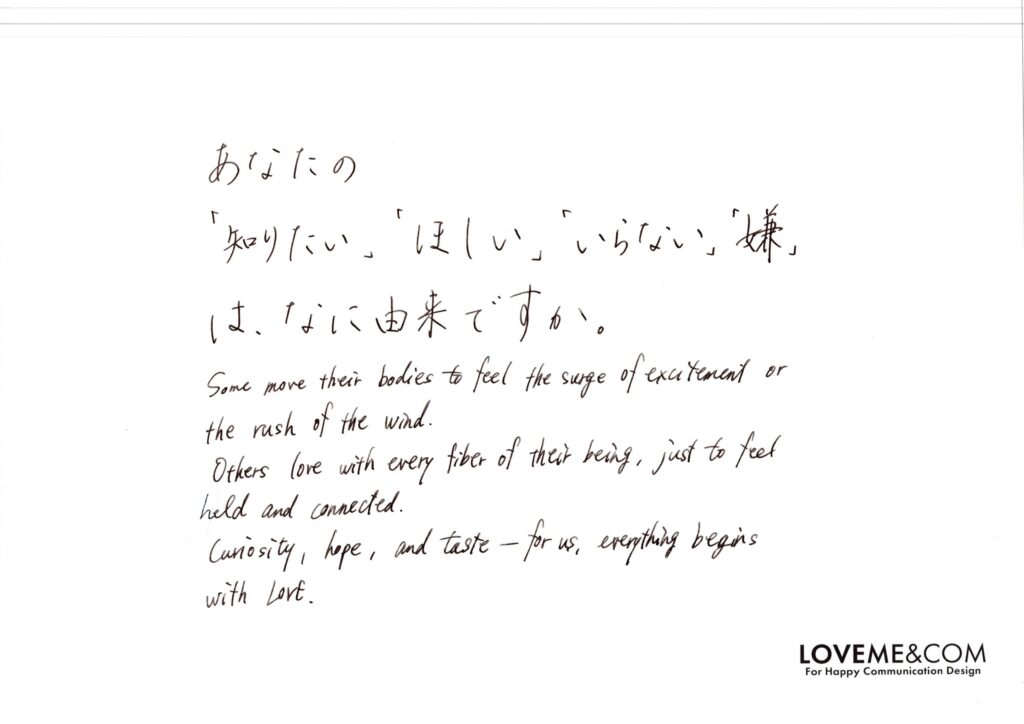 あなたの
「知りたい」「ほしい」「いらない」「嫌」
は、なに由来ですか。
Some move their bodies to feel the surge of excitement or
the rush of the wind.
Others love with every fiber of their being, just to feel
held and connected.
Curiosity, hope, and taste – for us, everything begins
with Love.
LOVEME&COM
For Happy Communication Design